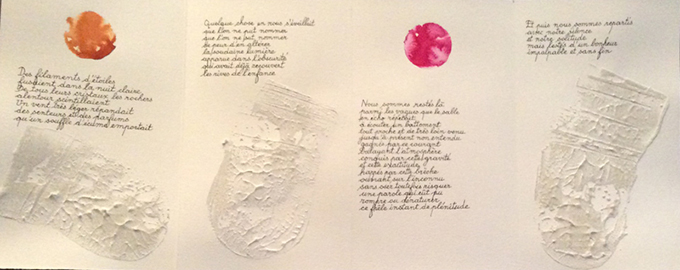 Des filaments d'étoiles
fusaient dans la nuit claire
De tous leurs cristaux les rochers
alentour scintillaient
Un vent très léger répandait
des senteurs et des parfums
qu'un souffle d'écume emportait
Quelque chose en nous s'éveillait
que l'on ne put nommer
que l'on ne sut nommer
de peur d'en altérer
la soudaine lumière
apparue dans l'obscurité
qui avait déjà recouvert
les rives de l'enfance
Nous sommes restés là
parmi les vagues que le sable
en écho répétait
à écouter un battement
tout proche et de très loin venu
jusqu'à présent non entendu
gagnés par ce courant
balayant l'atmosphère
conquis par cette gravité
et cette exactitude
happés par cette brèche
ouvrant sur l'inconnu
sans oser toutefois risquer
une parole qui eût pu
rompre ou dénaturer
ce frêle instant de plénitude
Et puis nous sommes repartis
avec notre silence
et notre solitude
mais emplis d'un bonheur
impalpable et sans fin